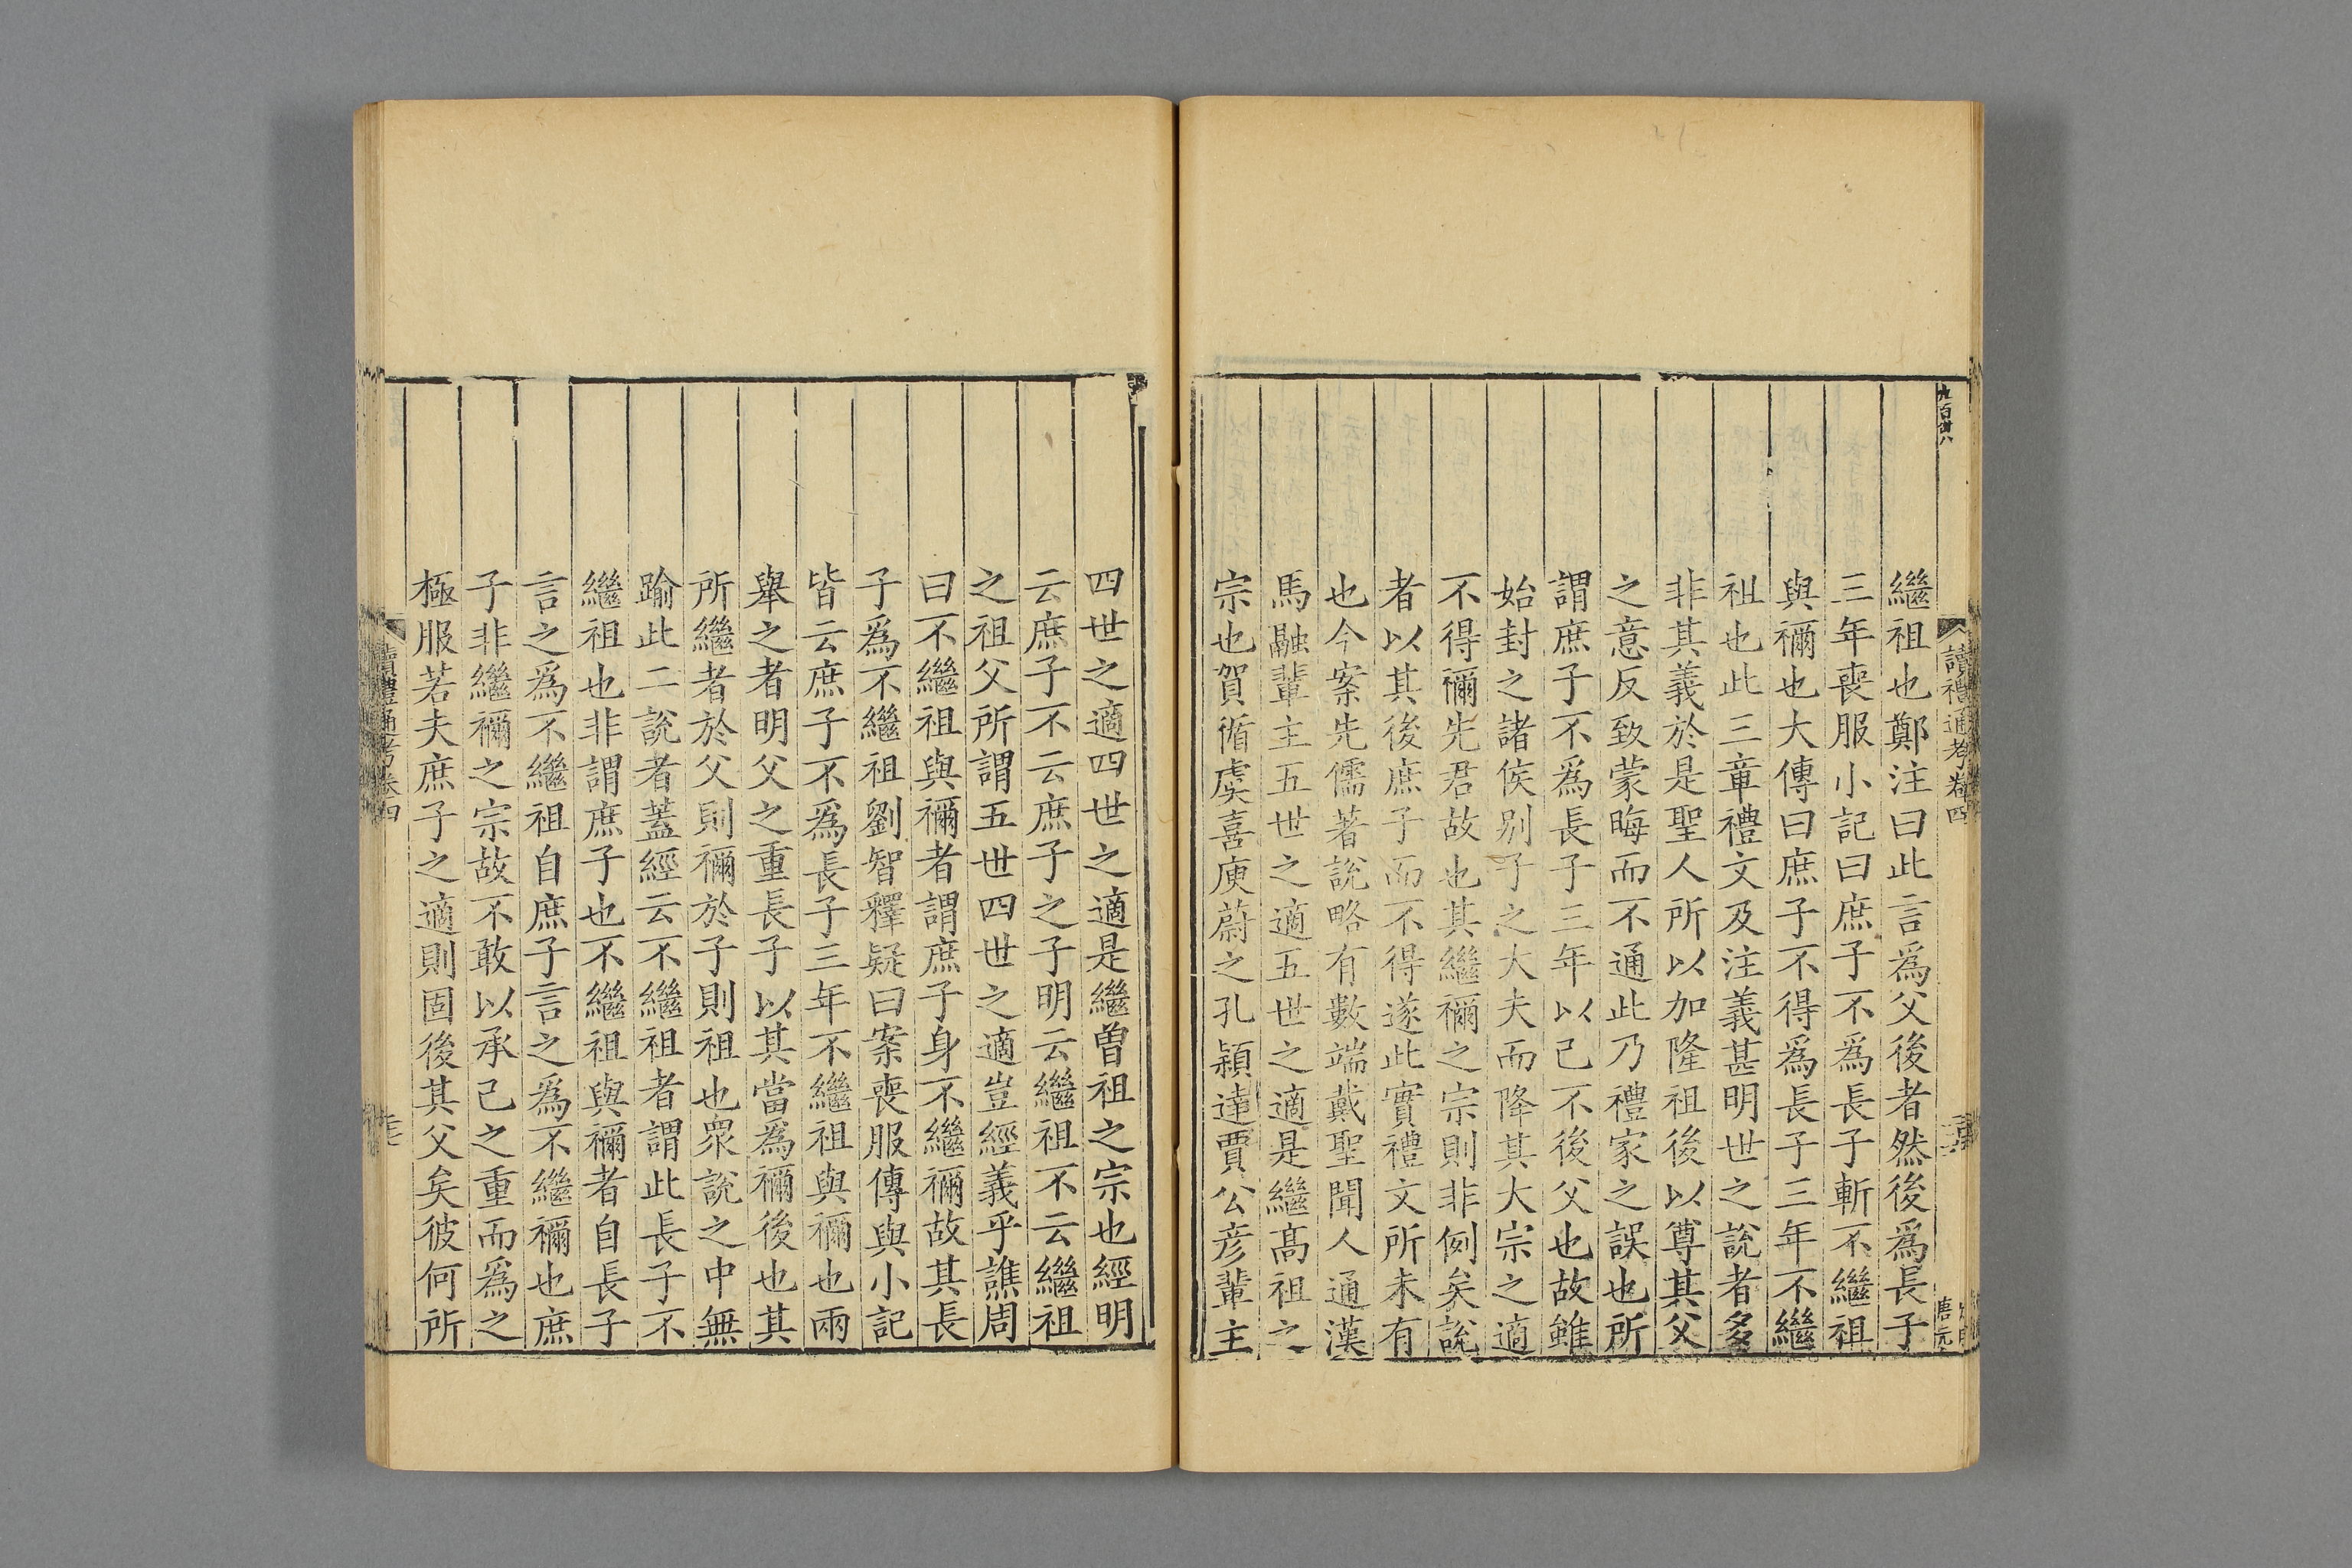 九百卅八
讀禮通考卷四
繼祖也鄭注曰此言爲父後者然後爲長子
三年喪服小記曰庶子不爲長子斬不繼祖
與禰也大傳曰庶子不得爲長子三年不繼
祖也此三章禮文及注義甚明世之說者多
非其義於是聖人所以加隆祖後以尊其父
之意反致蒙晦而不通此乃禮家之誤也所
謂庶子不爲長子三年以己不後父也故雖
始封之諸侯别子之大夫而降其大宗之適
不得禰先君故也其繼禰之宗則非例矣說
者以其後庶子而不得遂此實禮文所未有
也今案先儒著說略有數端戴聖聞人通漢
馬融輩主五世之適五世之適是繼高祖之
宗也賀循虞喜庾蔚之孔穎達賈公彦輩主
四世之適四世之適是繼曾祖之宗也經明
云庶子不云庶子之子明云繼祖不云繼祖
之祖父所謂五世四世之適豈經義乎譙周
曰不繼祖與禰者謂庶子身不繼禰故其長
子爲不繼祖劉智釋疑曰案喪服傳與小記
皆云庶子不爲長子三年不繼祖與禰也兩
舉之者明父之重長子以其當爲禰後也其
所繼者於父則禰於子則祖也眾說之中無
踰此二說者蓋經云不繼祖者謂此長子不
繼祖也非謂庶子也不繼祖與禰者自長子
言之爲不繼祖自庶子言之爲不繼禰也庶
子非繼禰之宗故不敢以承己之重而爲之
極服若夫庶子之適則固後其父矣彼何所
讀禮通考卷四